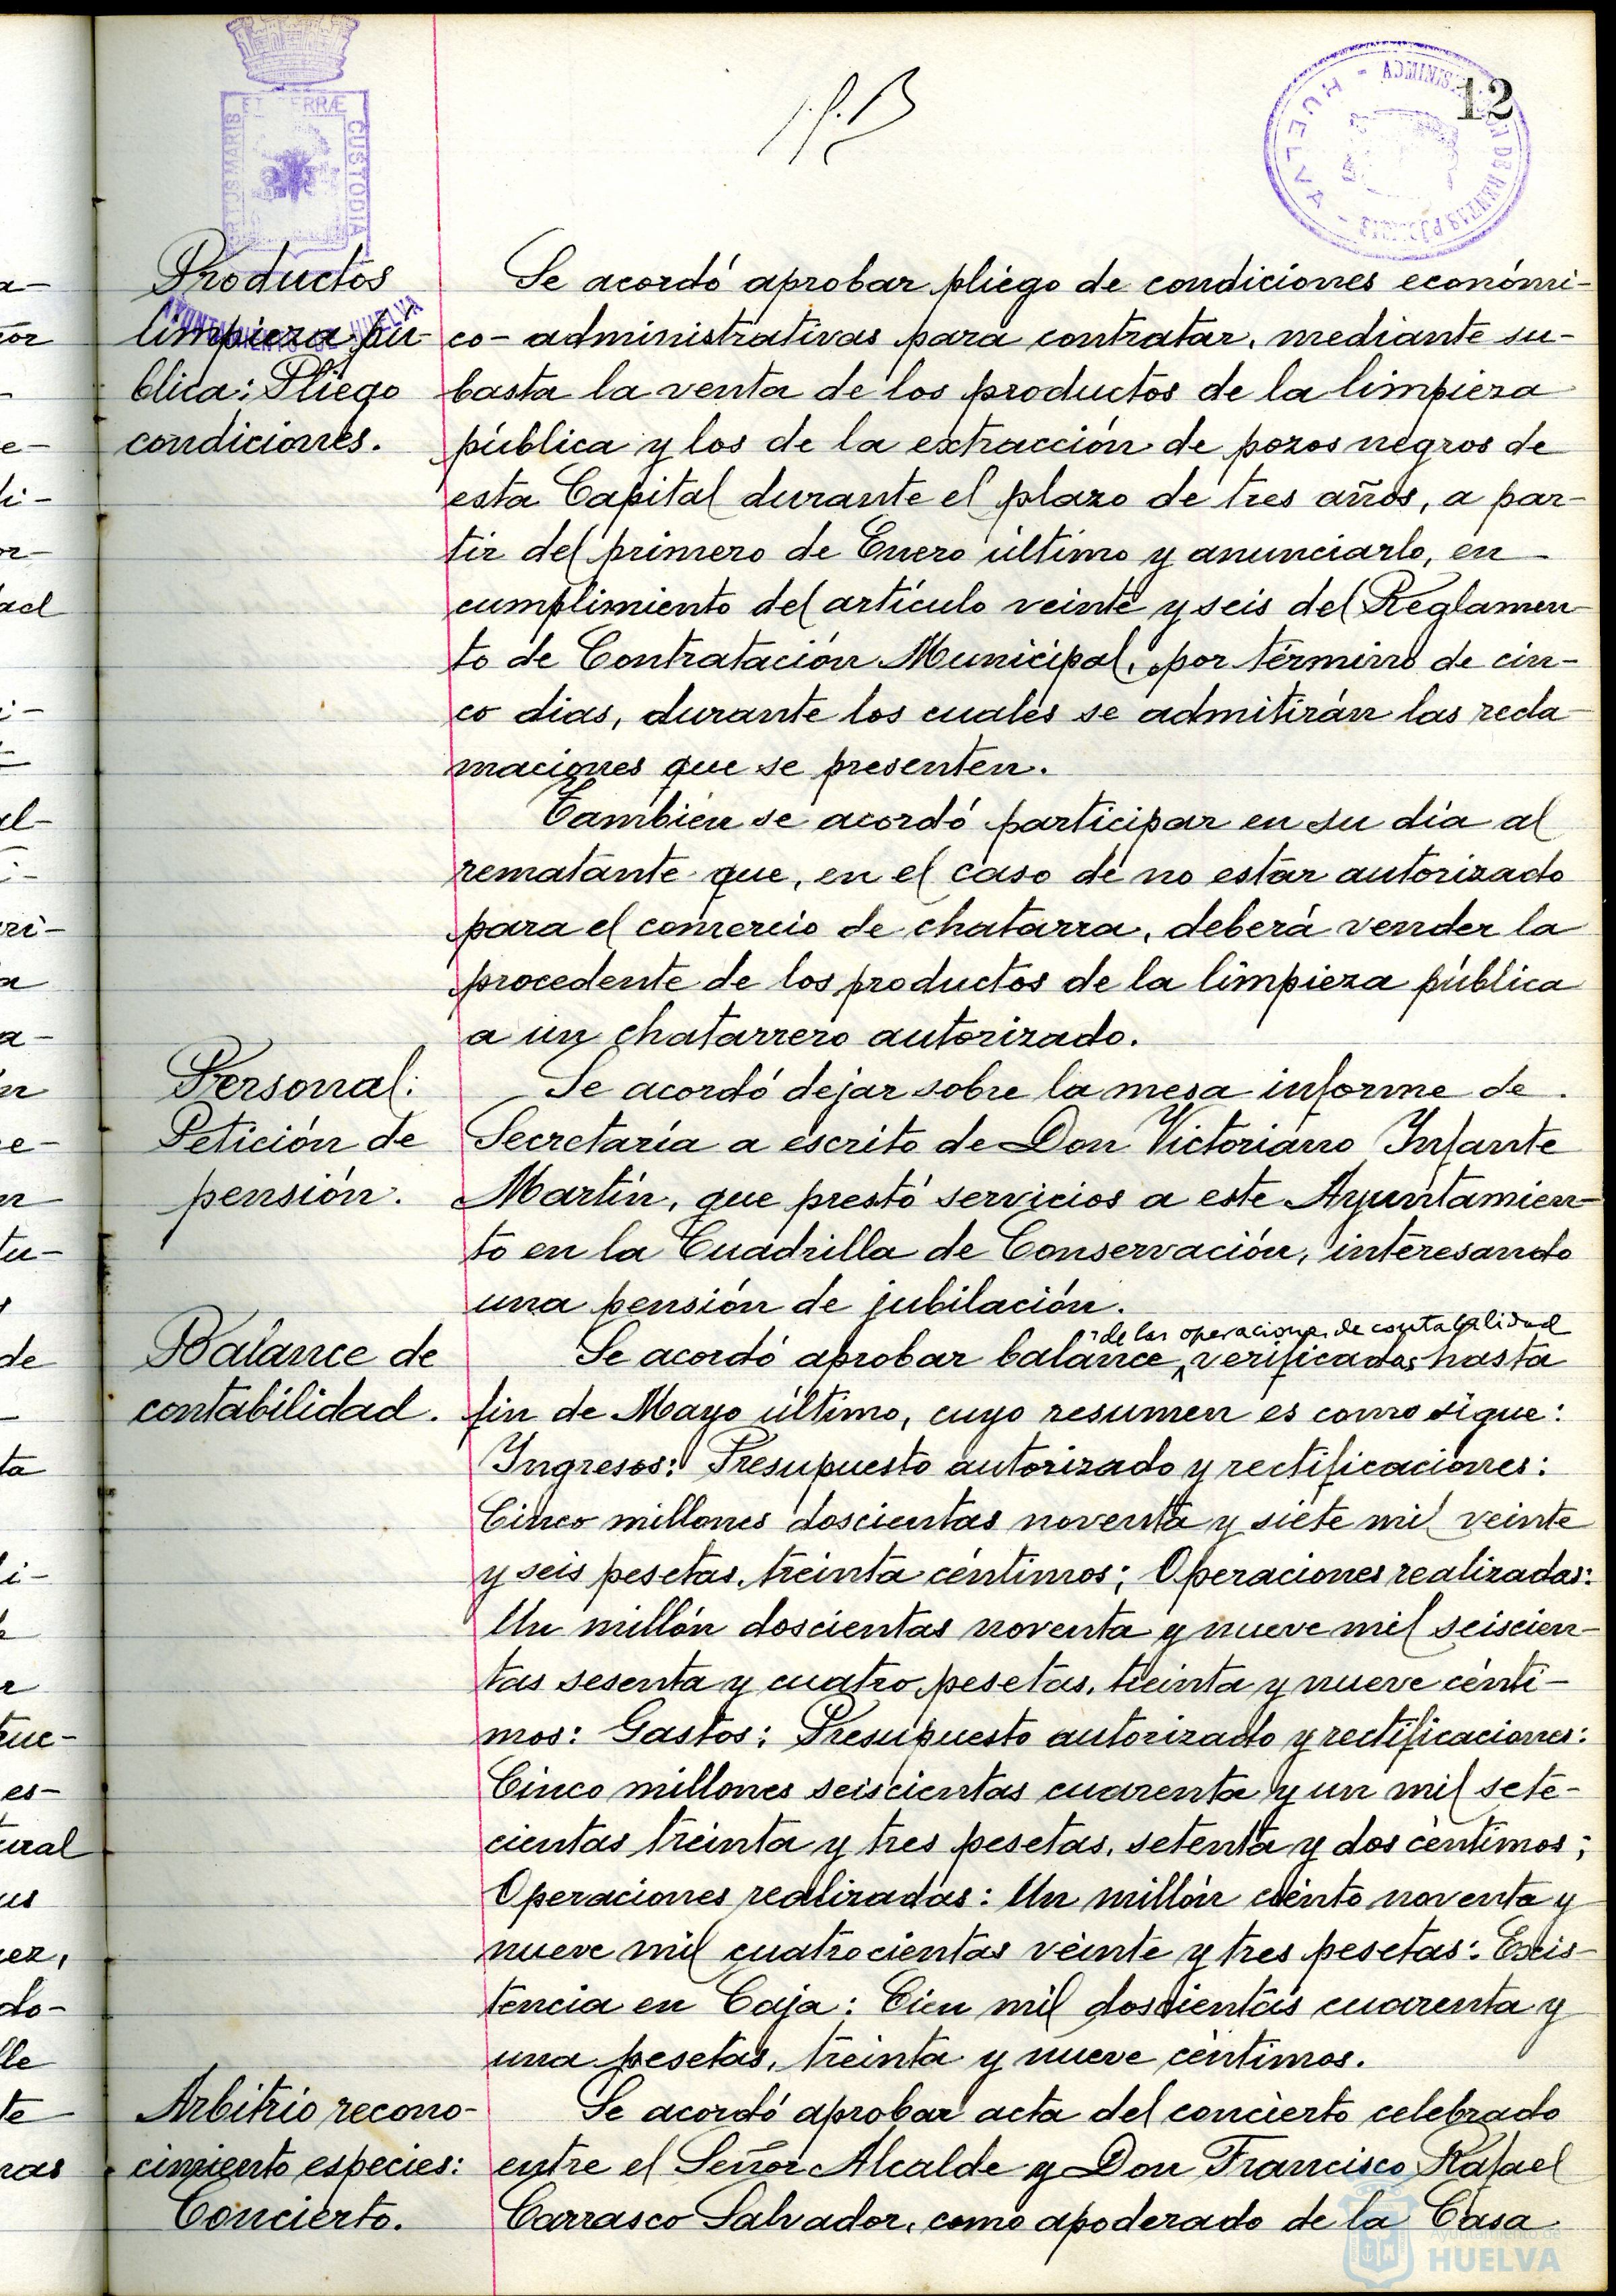 12
Productos
limpieza pú-
blica: Pliego
condiciones.
Se acordó aprobar pliego de condiciones económi-
co-administrativas para contratar, mediante su-
basta la venta de los productos de la limpieza
pública y los de la extracción de pozos negros de
esta Capital durante el plazo de tres años, a par-
tir del primero de Enero último y anunciarlo, en
cumplimiento del artículo veinte y seis del Reglamen-
to de Contratación Municipal, por término de cin-
co dias, durante los cuales se admitirán las recla-
maciones que se presenten.
También se acordó participar en su día al
rematante que, en el caso de no estar autorizado
para el comercio de chatarra, deberá vender la
procedente de los productos de la limpieza pública
a un chatarrero autorizado.
Personal:
Petición de
pensión.
Se acordó dejar sobre la mesa informe de
Secretaría a escrito de Don Victoriano Infante
Martín, que prestó servicios a este Ayuntamien-
to en la Cuadrilla de Conservación, interesando
una pensión de jubilación.
Balance de
contabilidad.
de las operaciones de contabilidad
Se acordó aprobar balance verificadas hasta
fin de Mayo último, cuyo resumen es como sigue:
Ingresos: Presupuesto autorizado y rectificaciones:
Cinco millones doscientas noventa y siete mil veinte
y seis pesetas, treinta céntimos; Operaciones realizadas:
Un millón doscientas noventa y nueve mil seiscien-
tas sesenta y cuatro pesetas, treinta y nueve cénti-
mos: Gastos: Presupuesto autorizado y rectificaciones:
Cinco millones seiscientas cuarenta y un mil sete-
cientas treinta y tres pesetas, setenta y dos céntimos;
Operaciones realizadas: Un millón ciento noventa y
nueve mil cuatrocientas veinte y tres pesetas: Exis-
tencia en Caja: Cien mil doscientas cuarenta y
una pesetas, treinta y nueve céntimos.
Arbitrio recono-
cimiento especies:
Concierto.
Se acordó aprobar acta del concierto celebrado
entre el Señor Alcalde y Don Francisco Rafael
Carrasco Salvador, como apoderado de la Casa
CUSTODIA
HUELVA
Ayuntamiento de
HUELVA